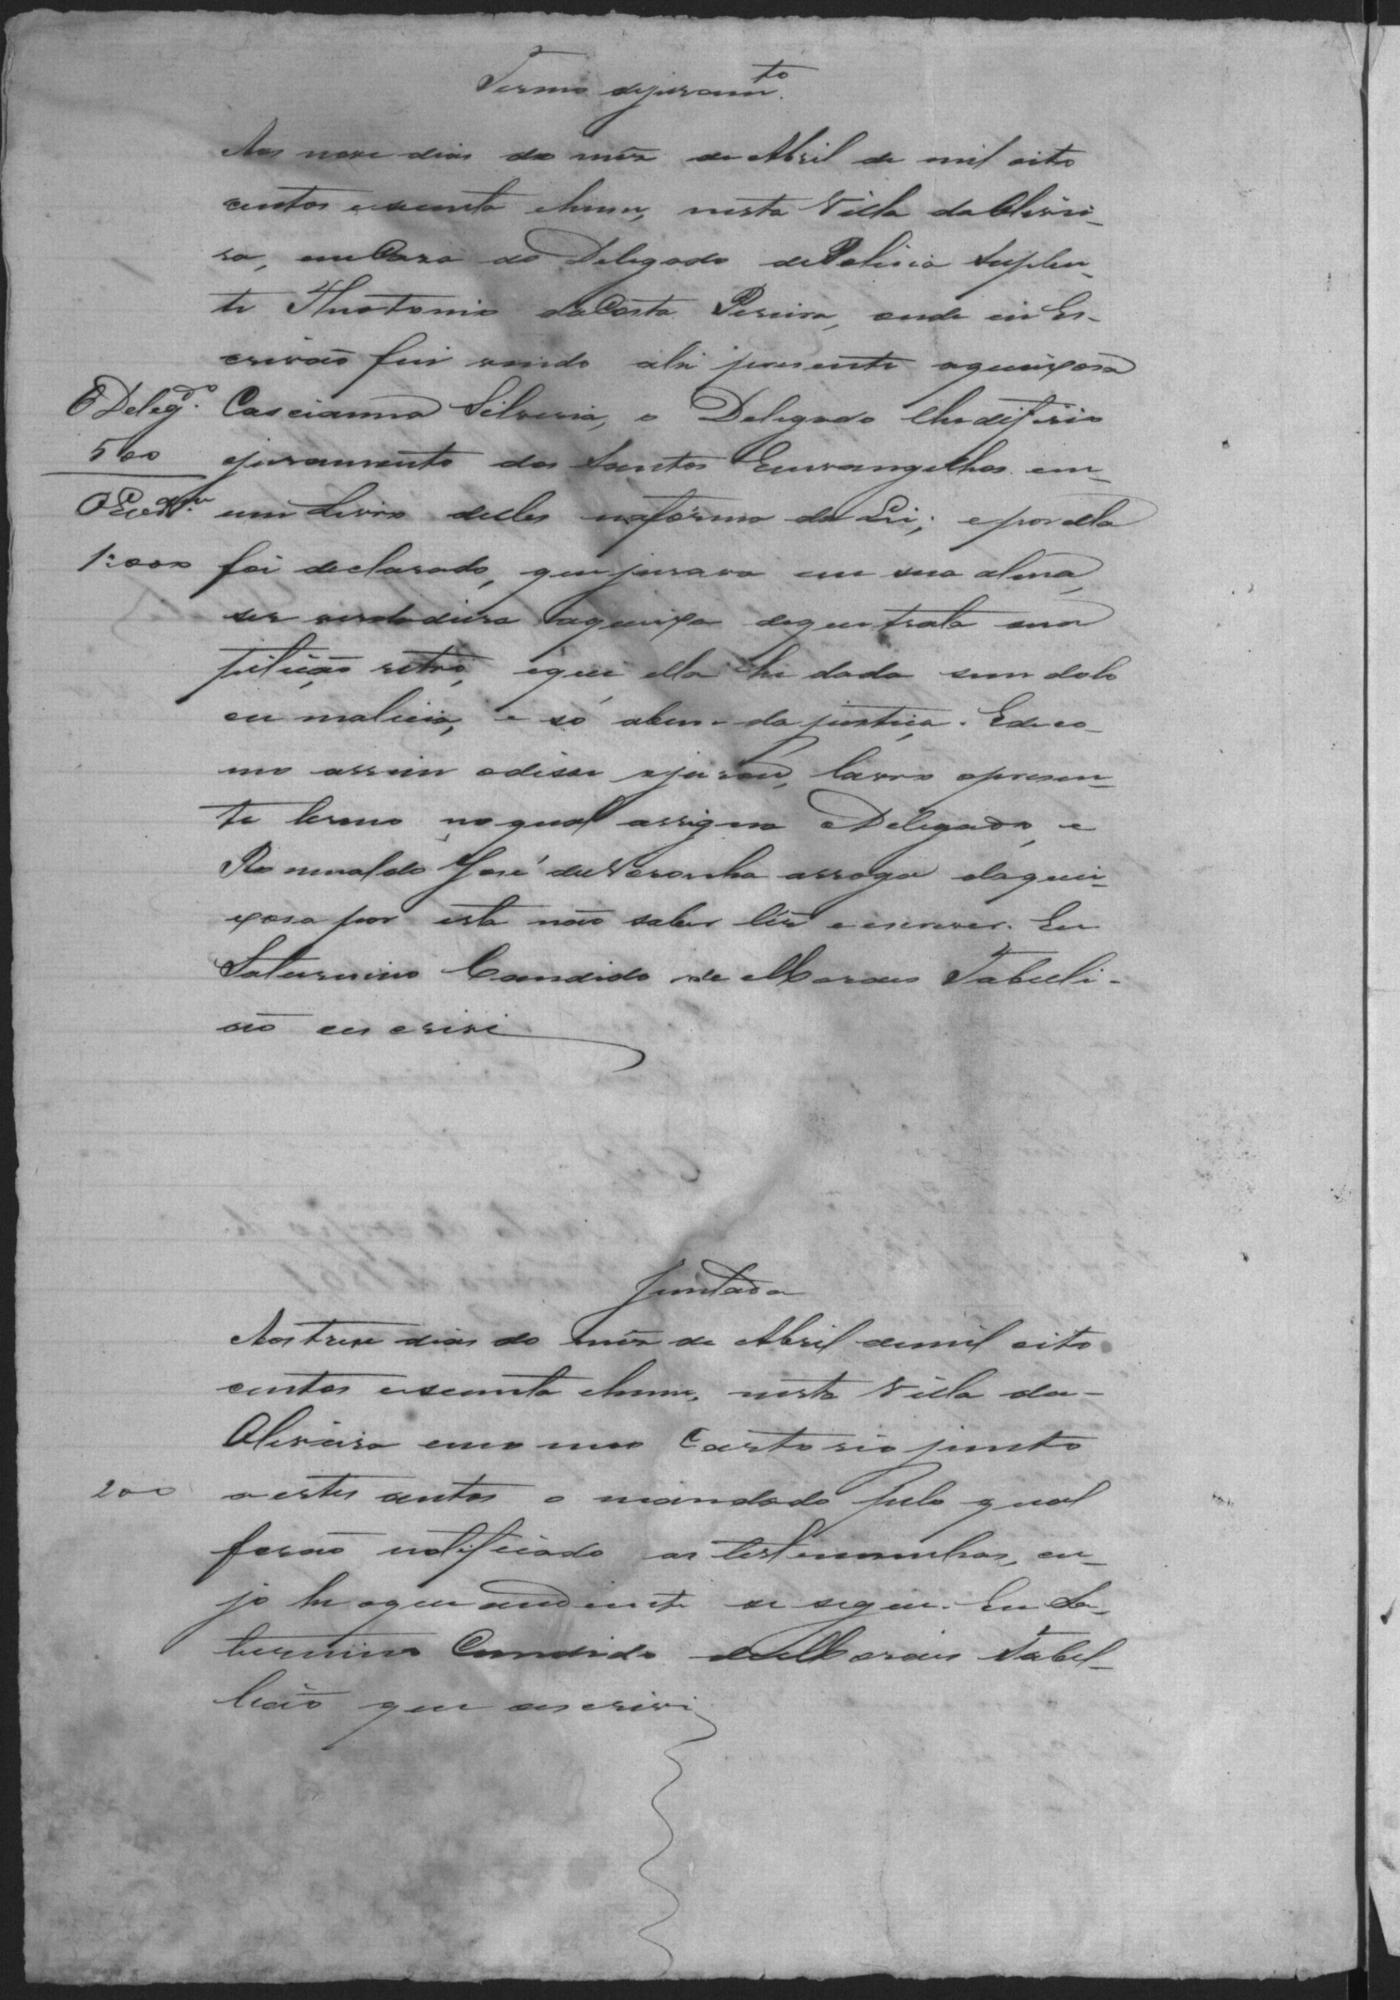 Termo dejuram.to
Aos nove dias do mêz de Abril de mil oito
centos esecenta ehum, nesta Villa da Olivei-
ra, em Caza do Delegado de Policia Suplen-
te Theotonio da Costa Pereira, onde eu Es-
crivaõ fui vindo ahi presente aqueixosa
O Deleg.do Cascianna Silveria, o Delegado lhe difirio
500 ojuramento dos Santos Euvangelhos em
O Escr.am um Livro delles naforma da Lei; e por ella
1:000 foi declarado, que jurava em sua alma,
ser verdadeira aqueixa dequetrata sua
petiçaõ retro, eque ella he dada sem dolo
eu malicia, e só abem da justiça. Edeco-
mo assim odisse ejurou, lavro opresen-
te termo noqual assigna o Delegado, e
Romualdo José de Noronha arrogo daquei-
xosa por esta naõ saber lêr e escrever. Eu
Saturnino Candido de Moraes Tabelli-
aõ escrivi
Juntada
Aos treze dias do mêz de Abril demil oito
centos esecenta ehum, nesta Villa da
Oliveira em o meo Cartorio junto
200 a estes autos o mandado pelo qual
foraõ notificado as testemunhas, cu-
jo he oque aodiente se segue. Eu Sa-
turnino Candido de Moraes Tabel-
liaõ que escrivi